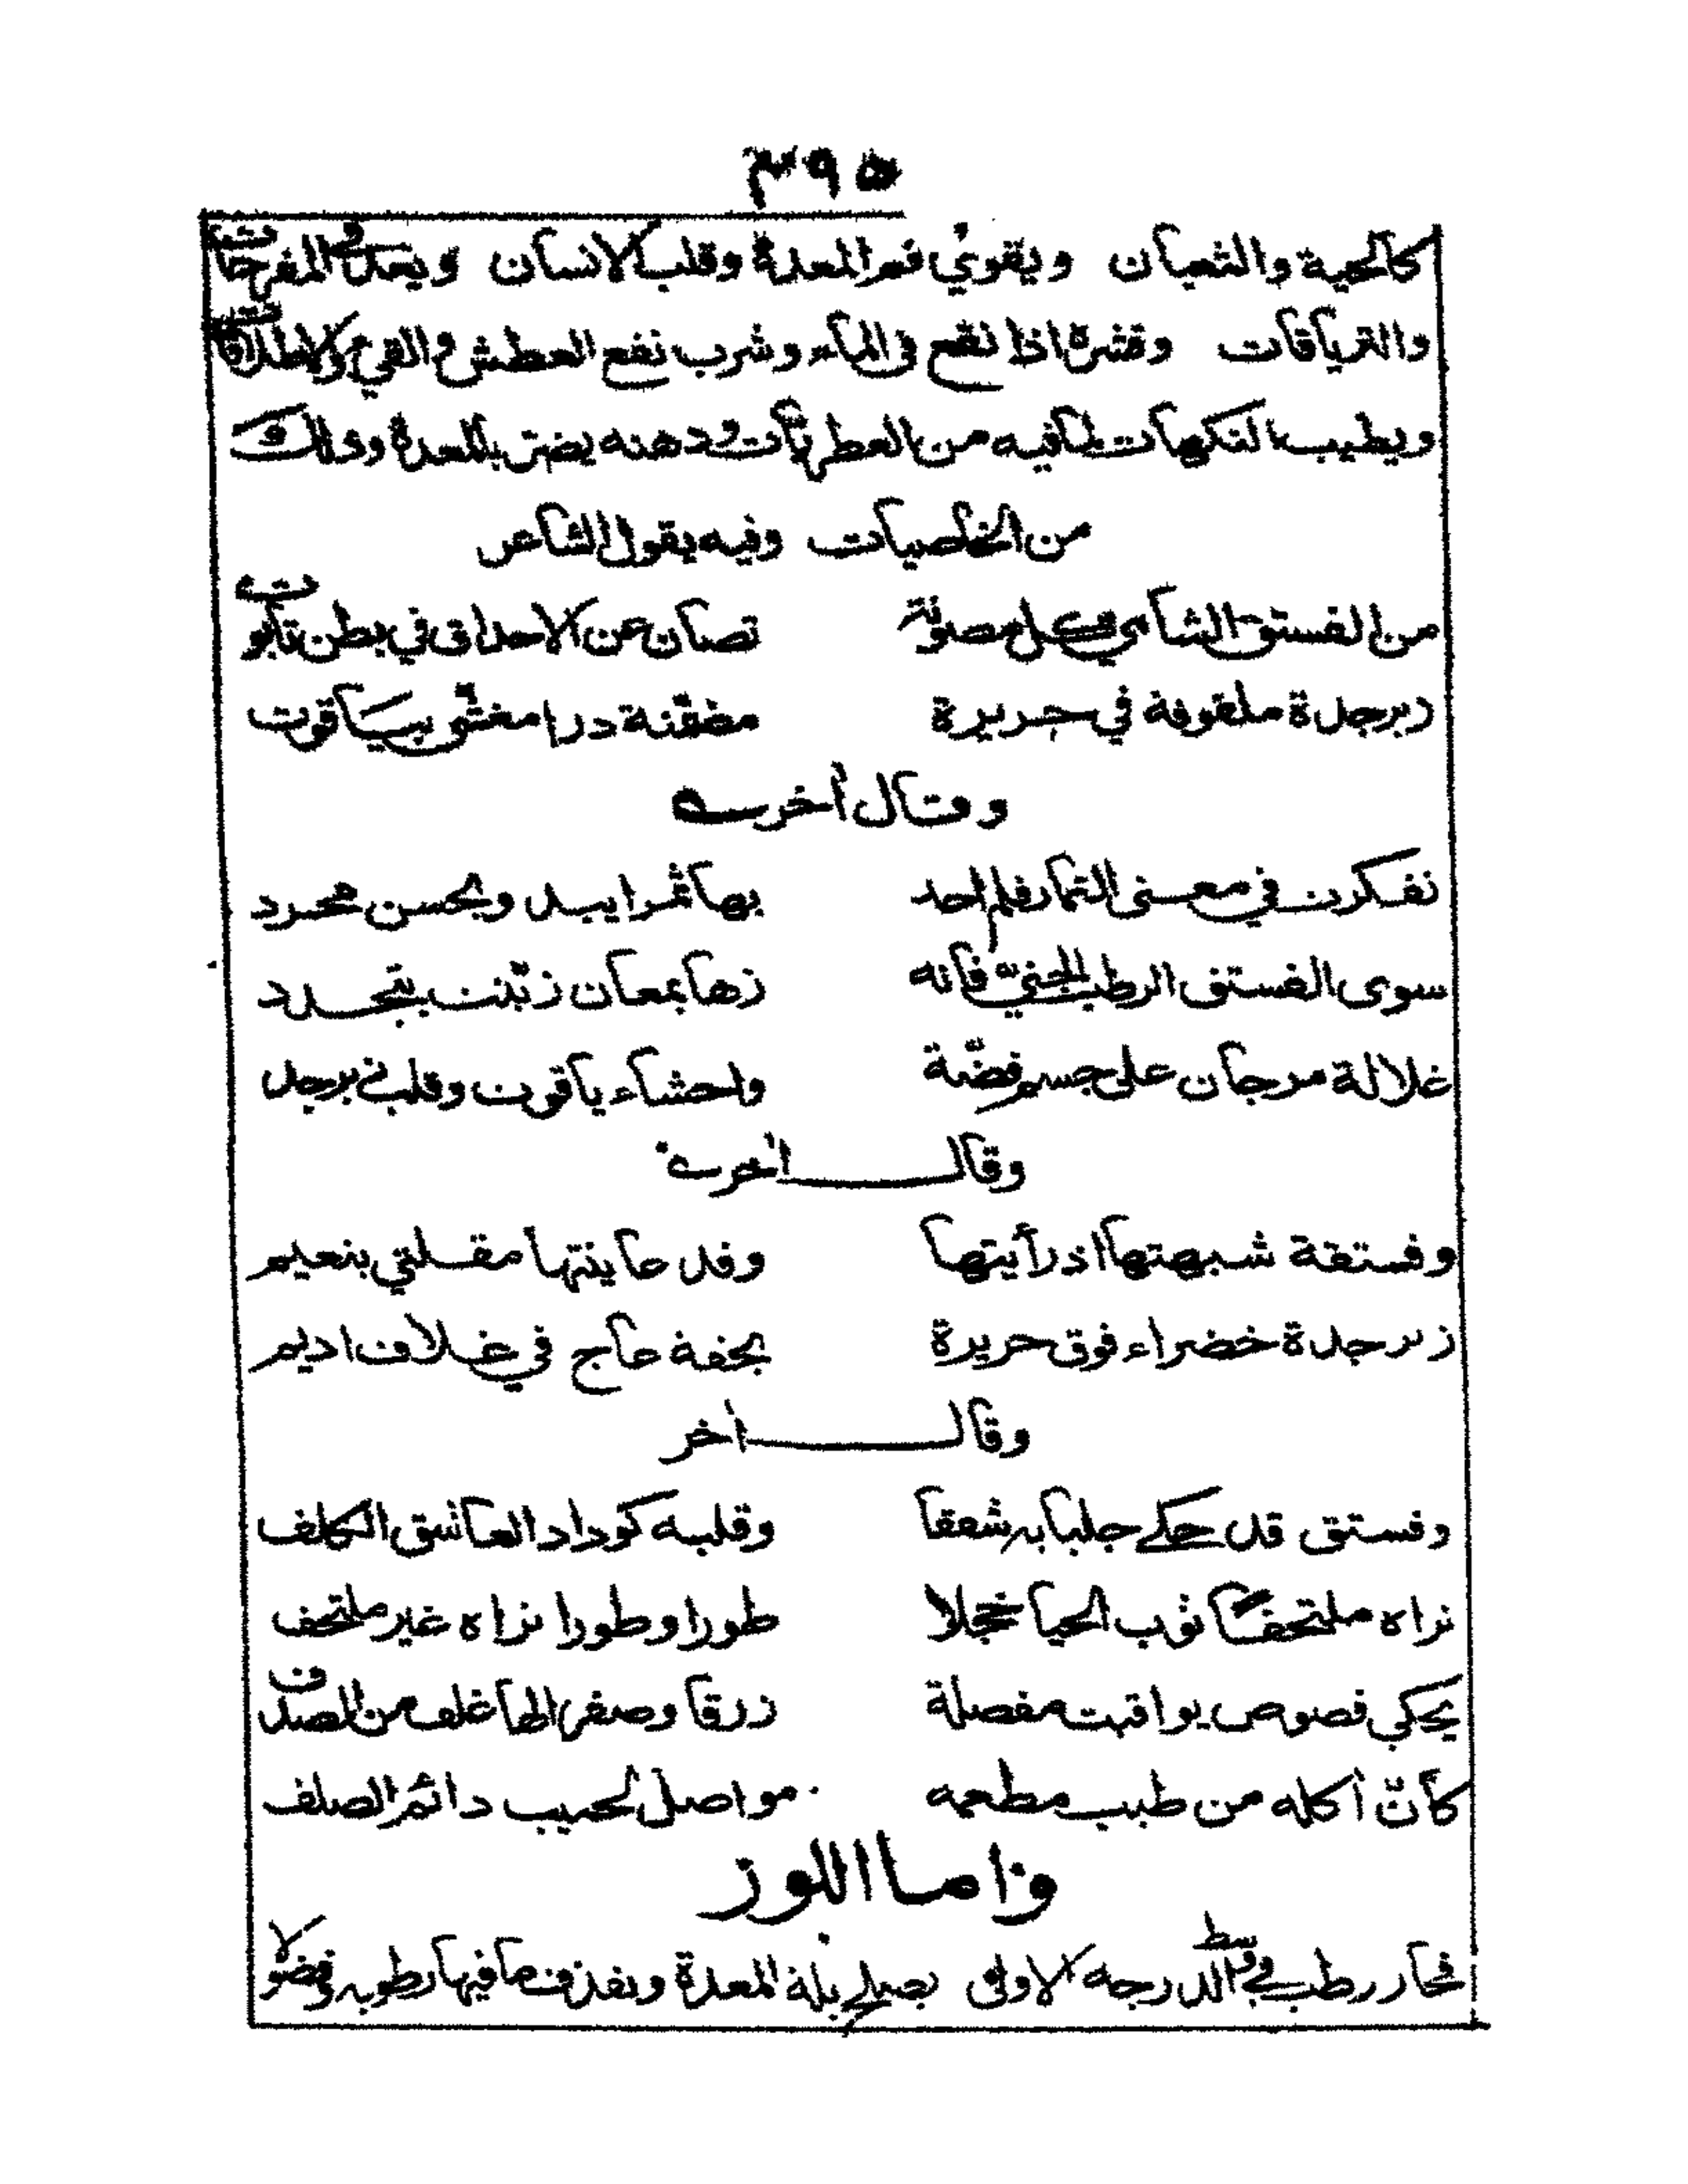 ٣٩٥
كالحية والثعبان ويقوي فم المعدة وقلب الانسان ويعد في المفرحات
والترياقات وقشره اذا نقع في الماء وشرب نفع العطش والقيء والاطلاقات
ويطيب النكهات لما فيه من العطريات ودهنه يضر بالمعدة وذلك
من الخاصيات وفيه يقول الشاعر
من الفستق الشامي كل مصونة تصان عن الاحداق في بطن تابوت
زبرجدة ملفوفة في حريرة مضمّنة درا مغشى بياقوت
وقال أخر
تفكرت في معنى الثمار فلم اجد بها ثمرا يبد وبحسن مجرد
سوى الفستق الرطب الجنيّ فانه زها بمعان زيّنت بتجدد
غلالة مرجان على جسم فضّة واحشاء ياقوت وقلب زبرجد
وقال أخر
وفستقة شبهتها اذ رأيتها وقد عاينتها مقلتي بنعيم
زبرجدة خضراء فوق حريرة بحقة عاج في غلاف اديم
وقال أخر
وفستق قد حكى جلبابه شفقا وقلبه كوداد العاشق الكلف
تراه ملتحفا ثوب الحيا خجلا طورا وطورا تراه غير ملتحف
يحكي فصوص يواقيت مفصلة زرقا وصفرا لها غلف من الصدف
كأنّ أكله من طيب مطعمه مواصل لحبيب دائم الصلف
واما اللوز
فحار رطب في وسط الدرجه الاولى يصلح بلة المعدة ما فيها رطوبه